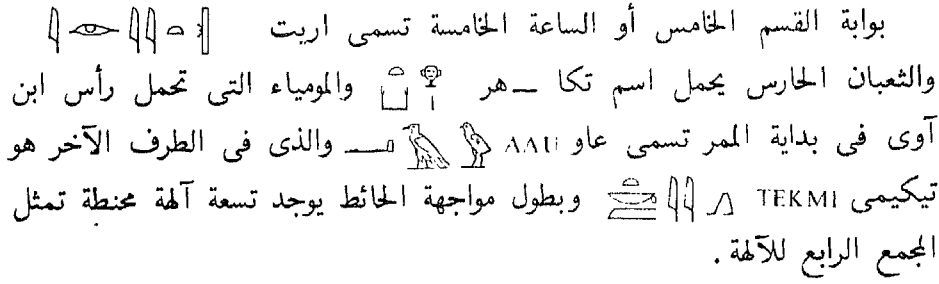 بوابة القسم الخامس أو الساعة الخامسة تسمى اريت
والثعبان الحارس يحمل اسم تكا ــ هر والمومياء التى تحمل رأس ابن
آوى فى بداية الممر تسمى عاو AAU والذى فى الطرف الآخر هو
تيكيمى TEKMI وبطول مواجهة الحائط يوجد تسعة آلهة محنطة تمثل
المجمع الرابع للآلهة .